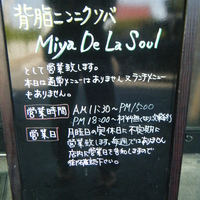 背脂ニンニクソバ
Miya De La Soul
として営業致します。
本日は通常メニューはありません スランチメニュー
もありません。
営業時間 A.M 11:30~PM 15:00
PM 18:00~ 材料無くなり次第終了
営業日 月曜日の定休日に不定期に
営業致します。毎週ではありません
店内に営業日を告知しますので
御確認下さい。